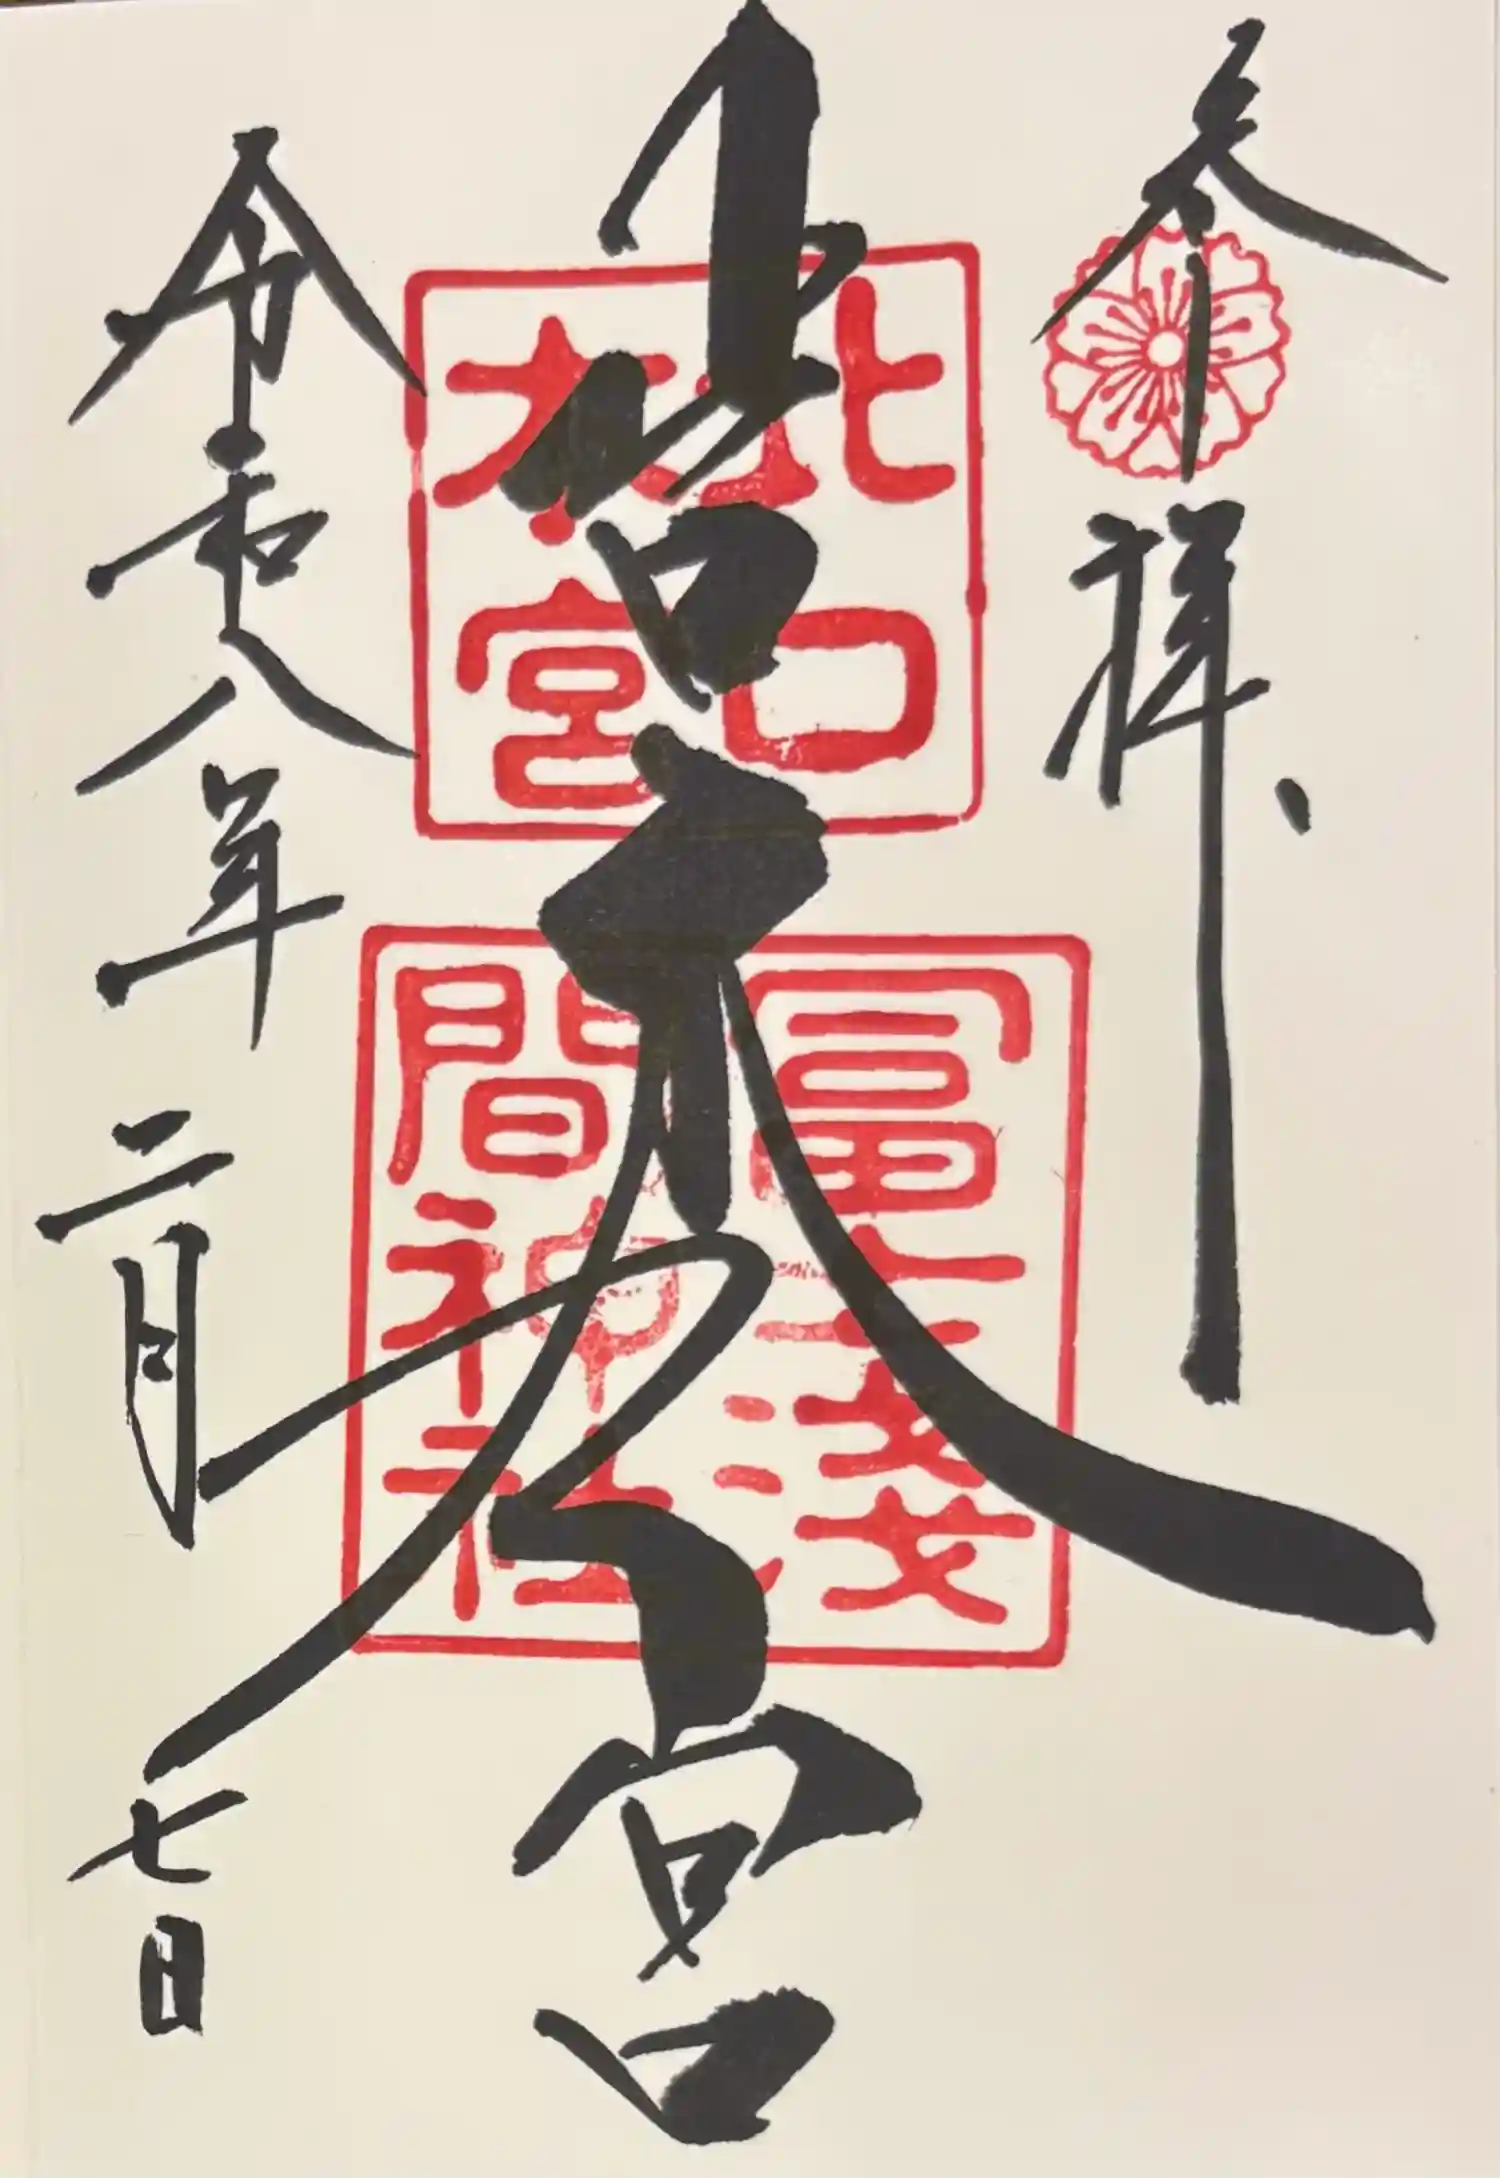 参拝
北口本宮
北口
本宮
冨士浅
間神社
令和八年二月七日